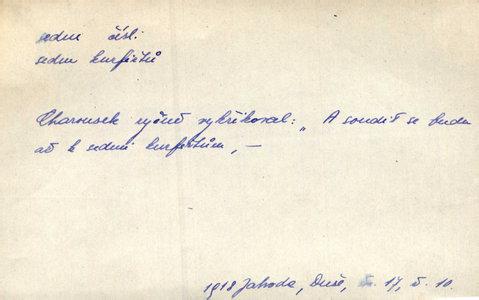 sedm čísl.
sedm kurfiřtů
Charousek ryčně vykřikoval: „A soudit se budu
až k sedmi kurfiřtům, —
1918 Jahoda, Duše, s. 17, ř. 10.